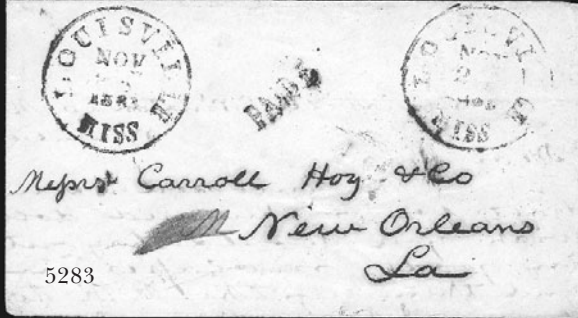 LOUISVILLE
NOV
MISS
PAID
LOUISVILLE
MISS
Messrs Carroll Hoy & Co
New Orleans
La
5283